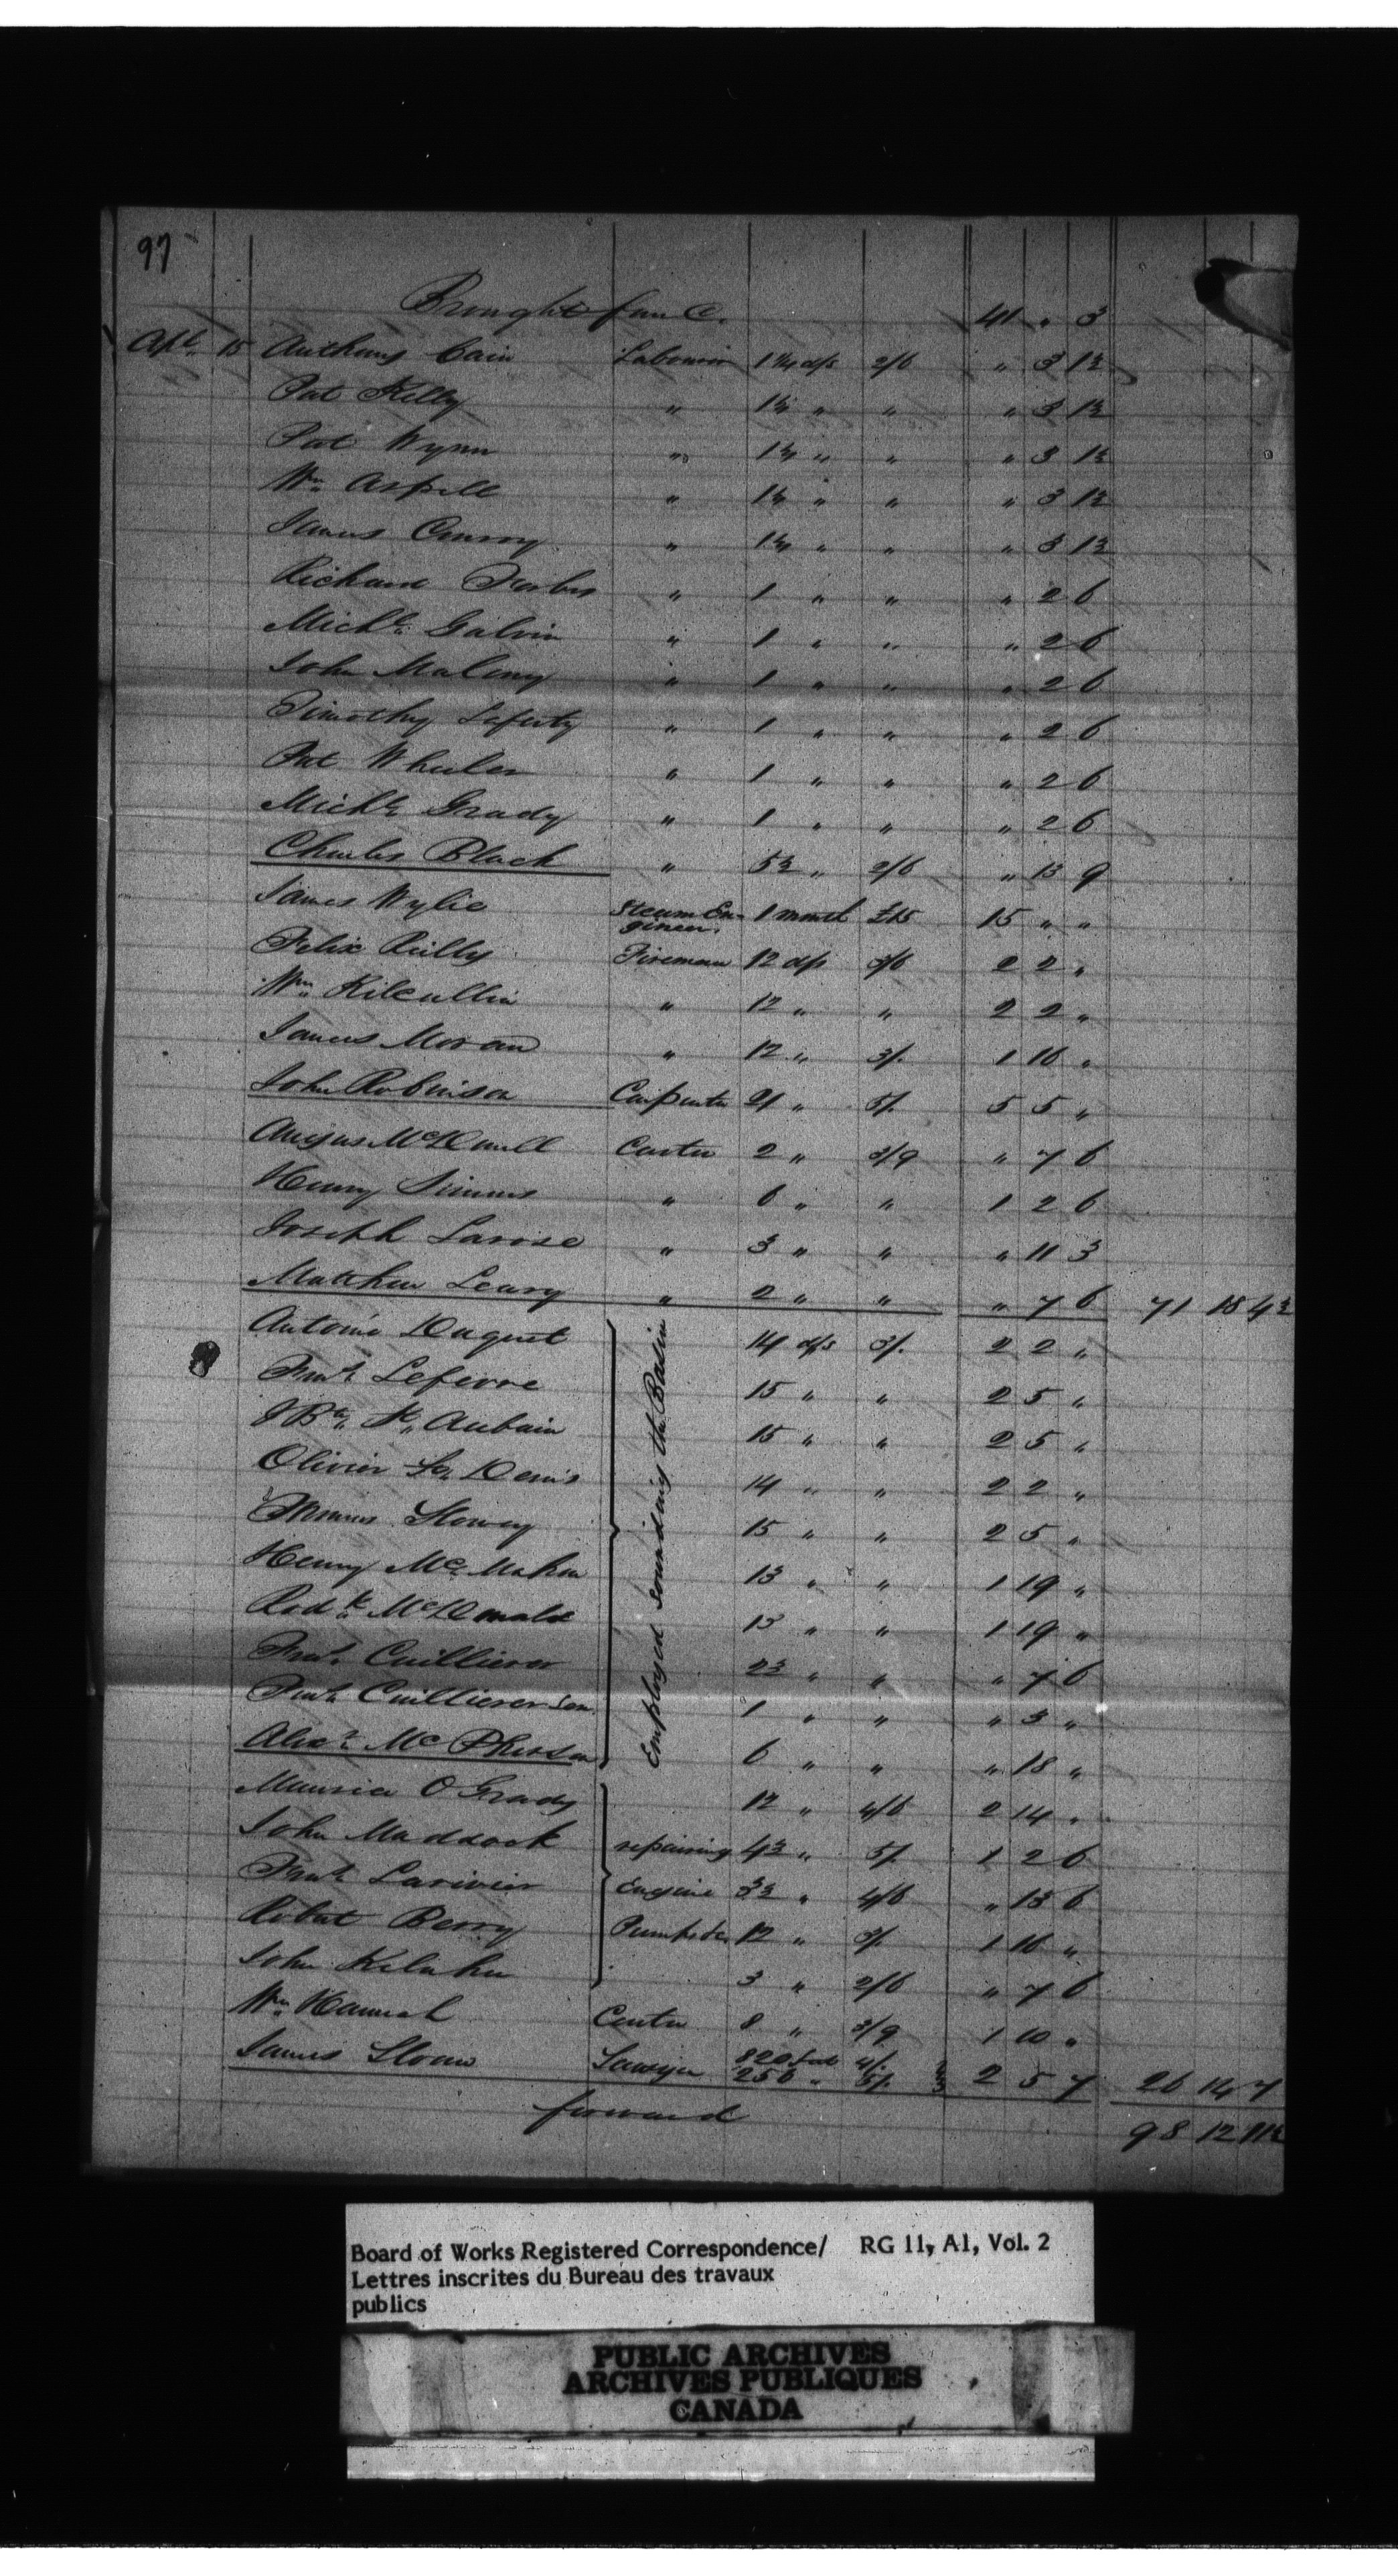 97
Brought forw.d 41 " 3
Apl. 15 Anthony Cain Labourer 1¼ d/s 2/6 " 3 1½
Pat Kelly " 1¼ " " " 3 1½
Pat Wynn " 1¼ " " " 3 1½
Wm Aspell " 1¼ " " " 3 1½
James Conroy " 1¼ " " " 3 1½
Richard Forbes " 1 " " " 2 6
Michl. Galvin " 1 " " " 2 6
John Malony " 1 " " " 2 6
Timothy Laferty " 1 " " " 2 6
Pat Wheeler " 1 " " " 2 6
Michl. Grady " 1 " " " 2 6
Charles Black " 5½ " 2/6 " 13 9
James Wylie Steam En-gineer. 1 month £15 15 " "
Felix Reilly Fireman 12 d/s 3/6 2 2 "
Wm Kilcullin " 12 " " 2 2 "
James Moran " 12 " 3/. 1 16 "
John Robinson Carpenter 21 " 5/. 5 5 "
Angus McDonell Carter 2 " 3/9 " 7 6
Henry Simms " 6 " " 1 2 6
Joseph Larose " 3 " " " 11 3
Matthew Leary " 2 " " " 7 6 71 18 4½
Employed sounding the Basin
Antoine Duquet 14 d/s 3/. 2 2 "
Frans. Lefevre 15 " " 2 5 "
J Bte. St. Aubain 15 " " 2 5 "
Olivier St. Denis 14 " " 2 2 "
Slowey 15 " " 2 5 "
Henry Mc.Mahon 13 " " 1 19 "
Rodk. McDonald 13 " " 1 19 "
Frans. Cuillierer 2½ " " " 7 6
Frans. Cuillierer Sen. 1 " " " 3 "
Alexr. McPherson 6 " " " 18 "
Maurice O Grady 12 " 4/6 2 14 "
John Maddock repairing 4½ " 5/. 1 2 6
Frans. Larivier Engine 3 " 4/6 " 13 6
Robert Berry Pump &c. 12 " 3/. 1 16 "
John Kelahu 3 " 2/6 " 7 6
Wm Hannah Carter 8 " 3/9 1 10 "
James Sloan Sawyer 820 feet 4/.
256 " 5/. 2 5 7 26 14 7
forward 98 12 11½
Board of Works Registered Correspondence/ RG 11, A1, Vol. 2
Lettres inscrites du Bureau des travaux
publics
PUBLIC ARCHIVES
ARCHIVES PUBLIQUES
CANADA